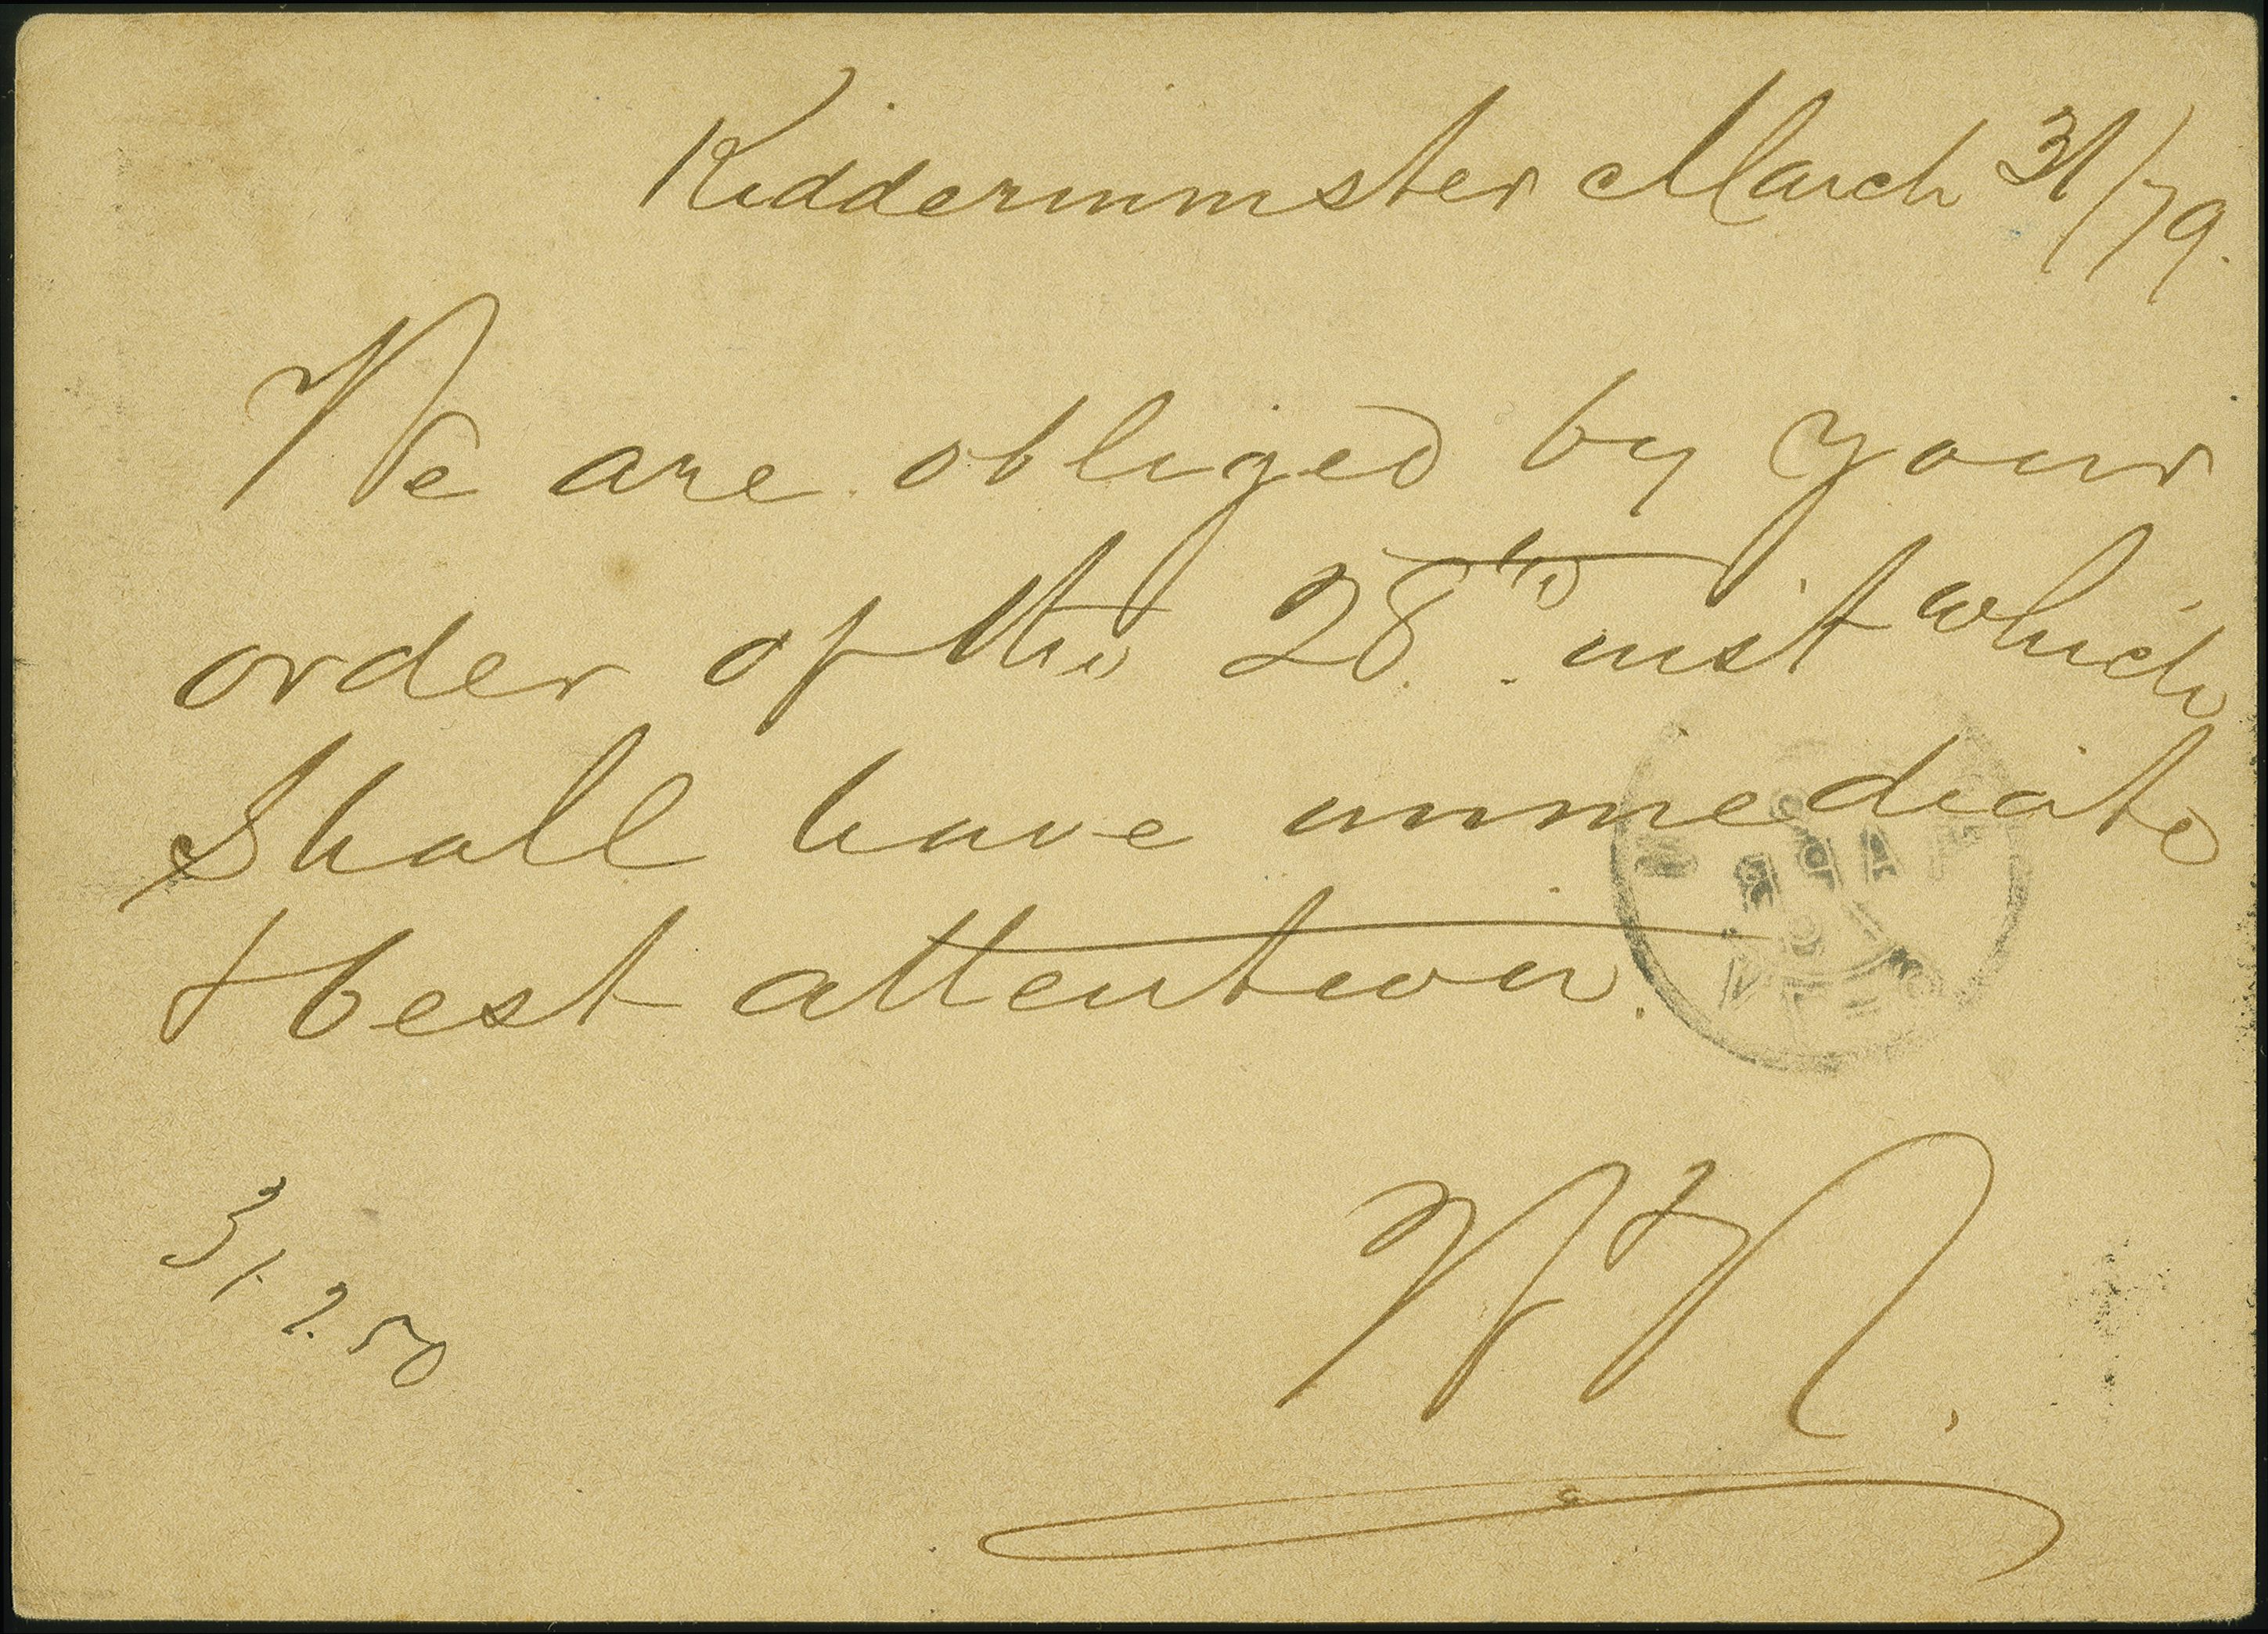 Kidderminster March 31/79.
We are obliged by your
order of the 28th inst which
shall have immediate
& best attention.